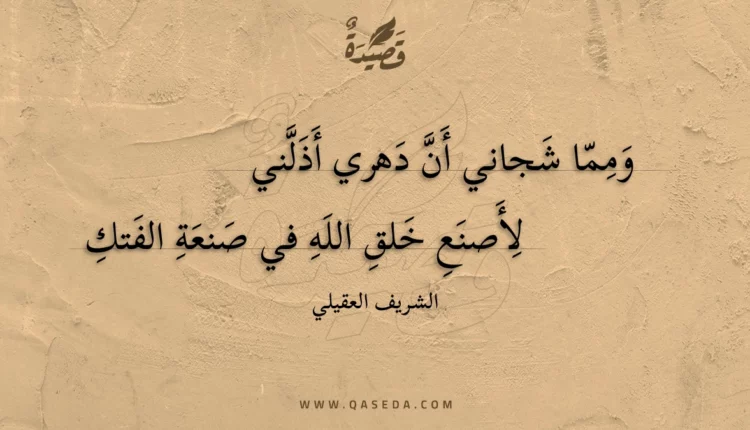 قَصِيدَةٌ
وَمِمّا شَجاني أَنَّ دَهري أَذَلَّني
لِأَصنَعِ خَلقِ اللَهِ في صَنعَةِ الفَتكِ
الشريف العقيلي
WWW.QASEDA.COM